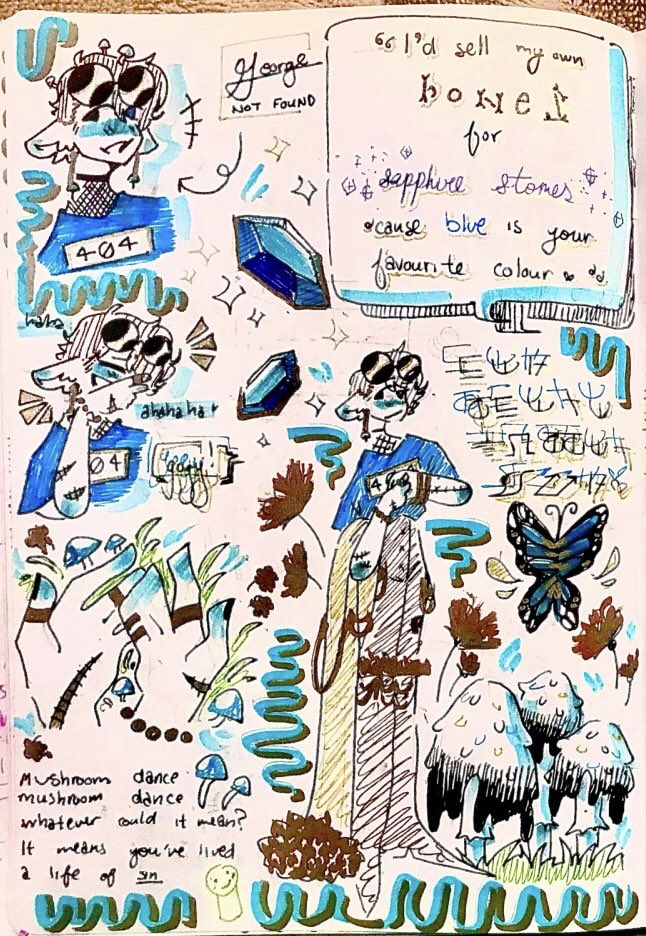 George
NOT FOUND
“I'd sell my own
bones
for
sapphire stones
'cause blue is your
favourite colour
404
haha
ahahaha!
404
gogy
404
Mushroom dance
mushroom dance
whatever could it mean?
It means you've lived
a life of sin